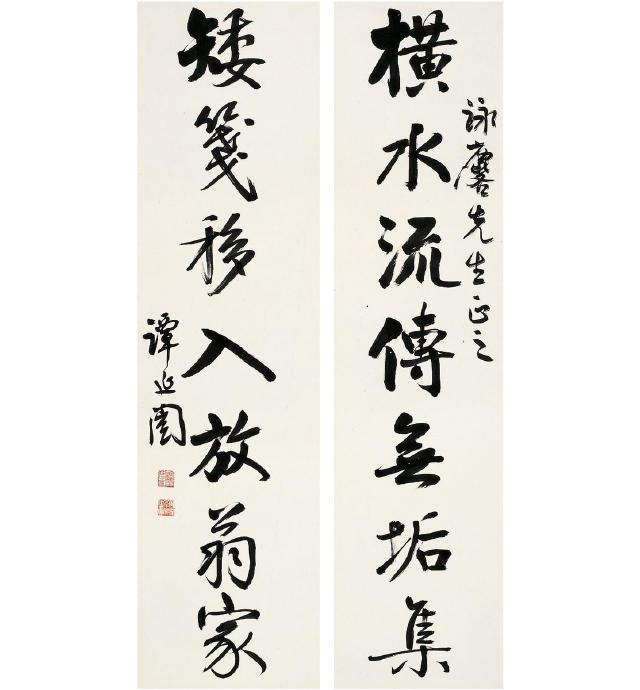 詠麐先生正之
橫水流傳無垢集
矮箋移入放翁家
譚延闓